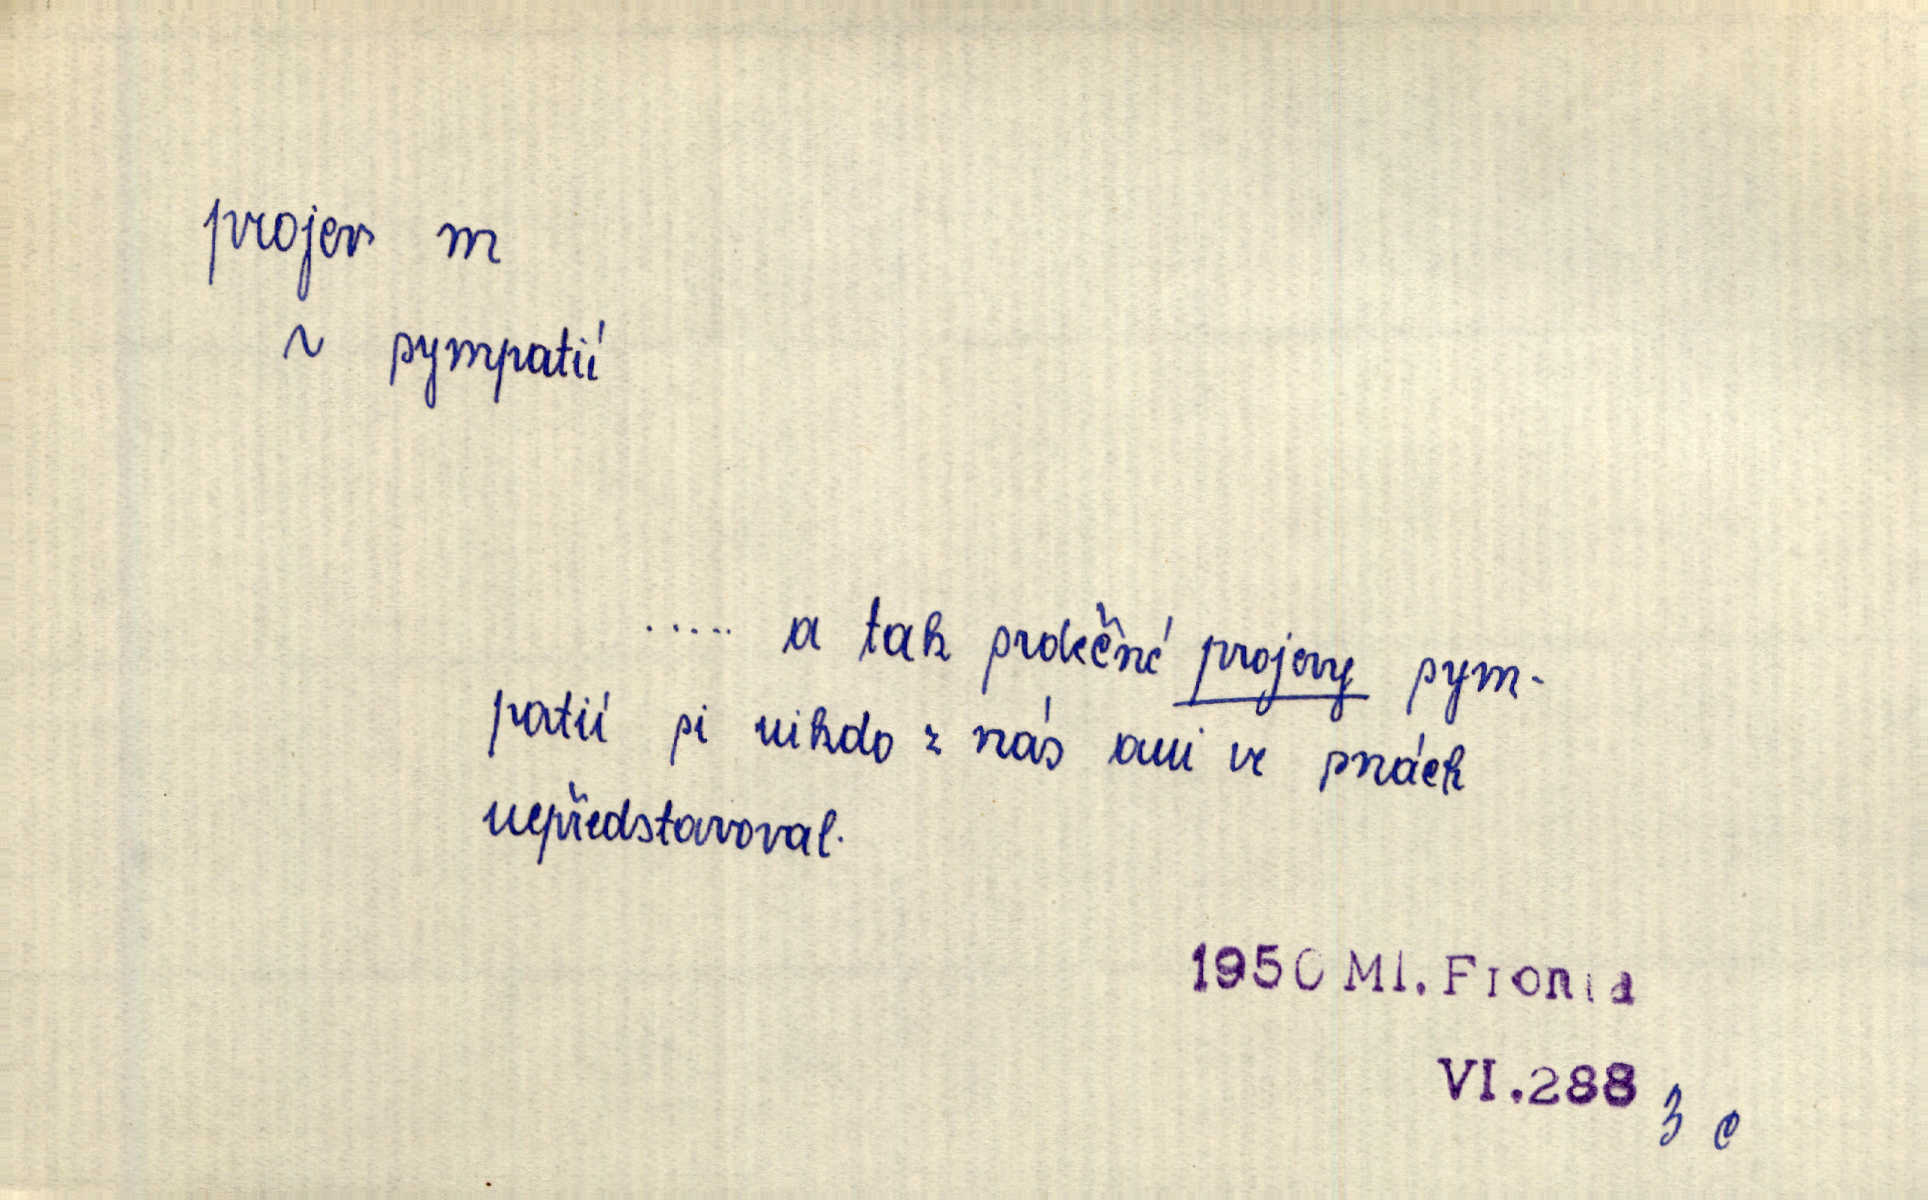 projev m
~ sympatií
..... a tak srdečné projevy sym-
patií si nikdo z nás ani ve snách
nepředstavoval.
1950 Ml. Fronta
VI.288 3 c